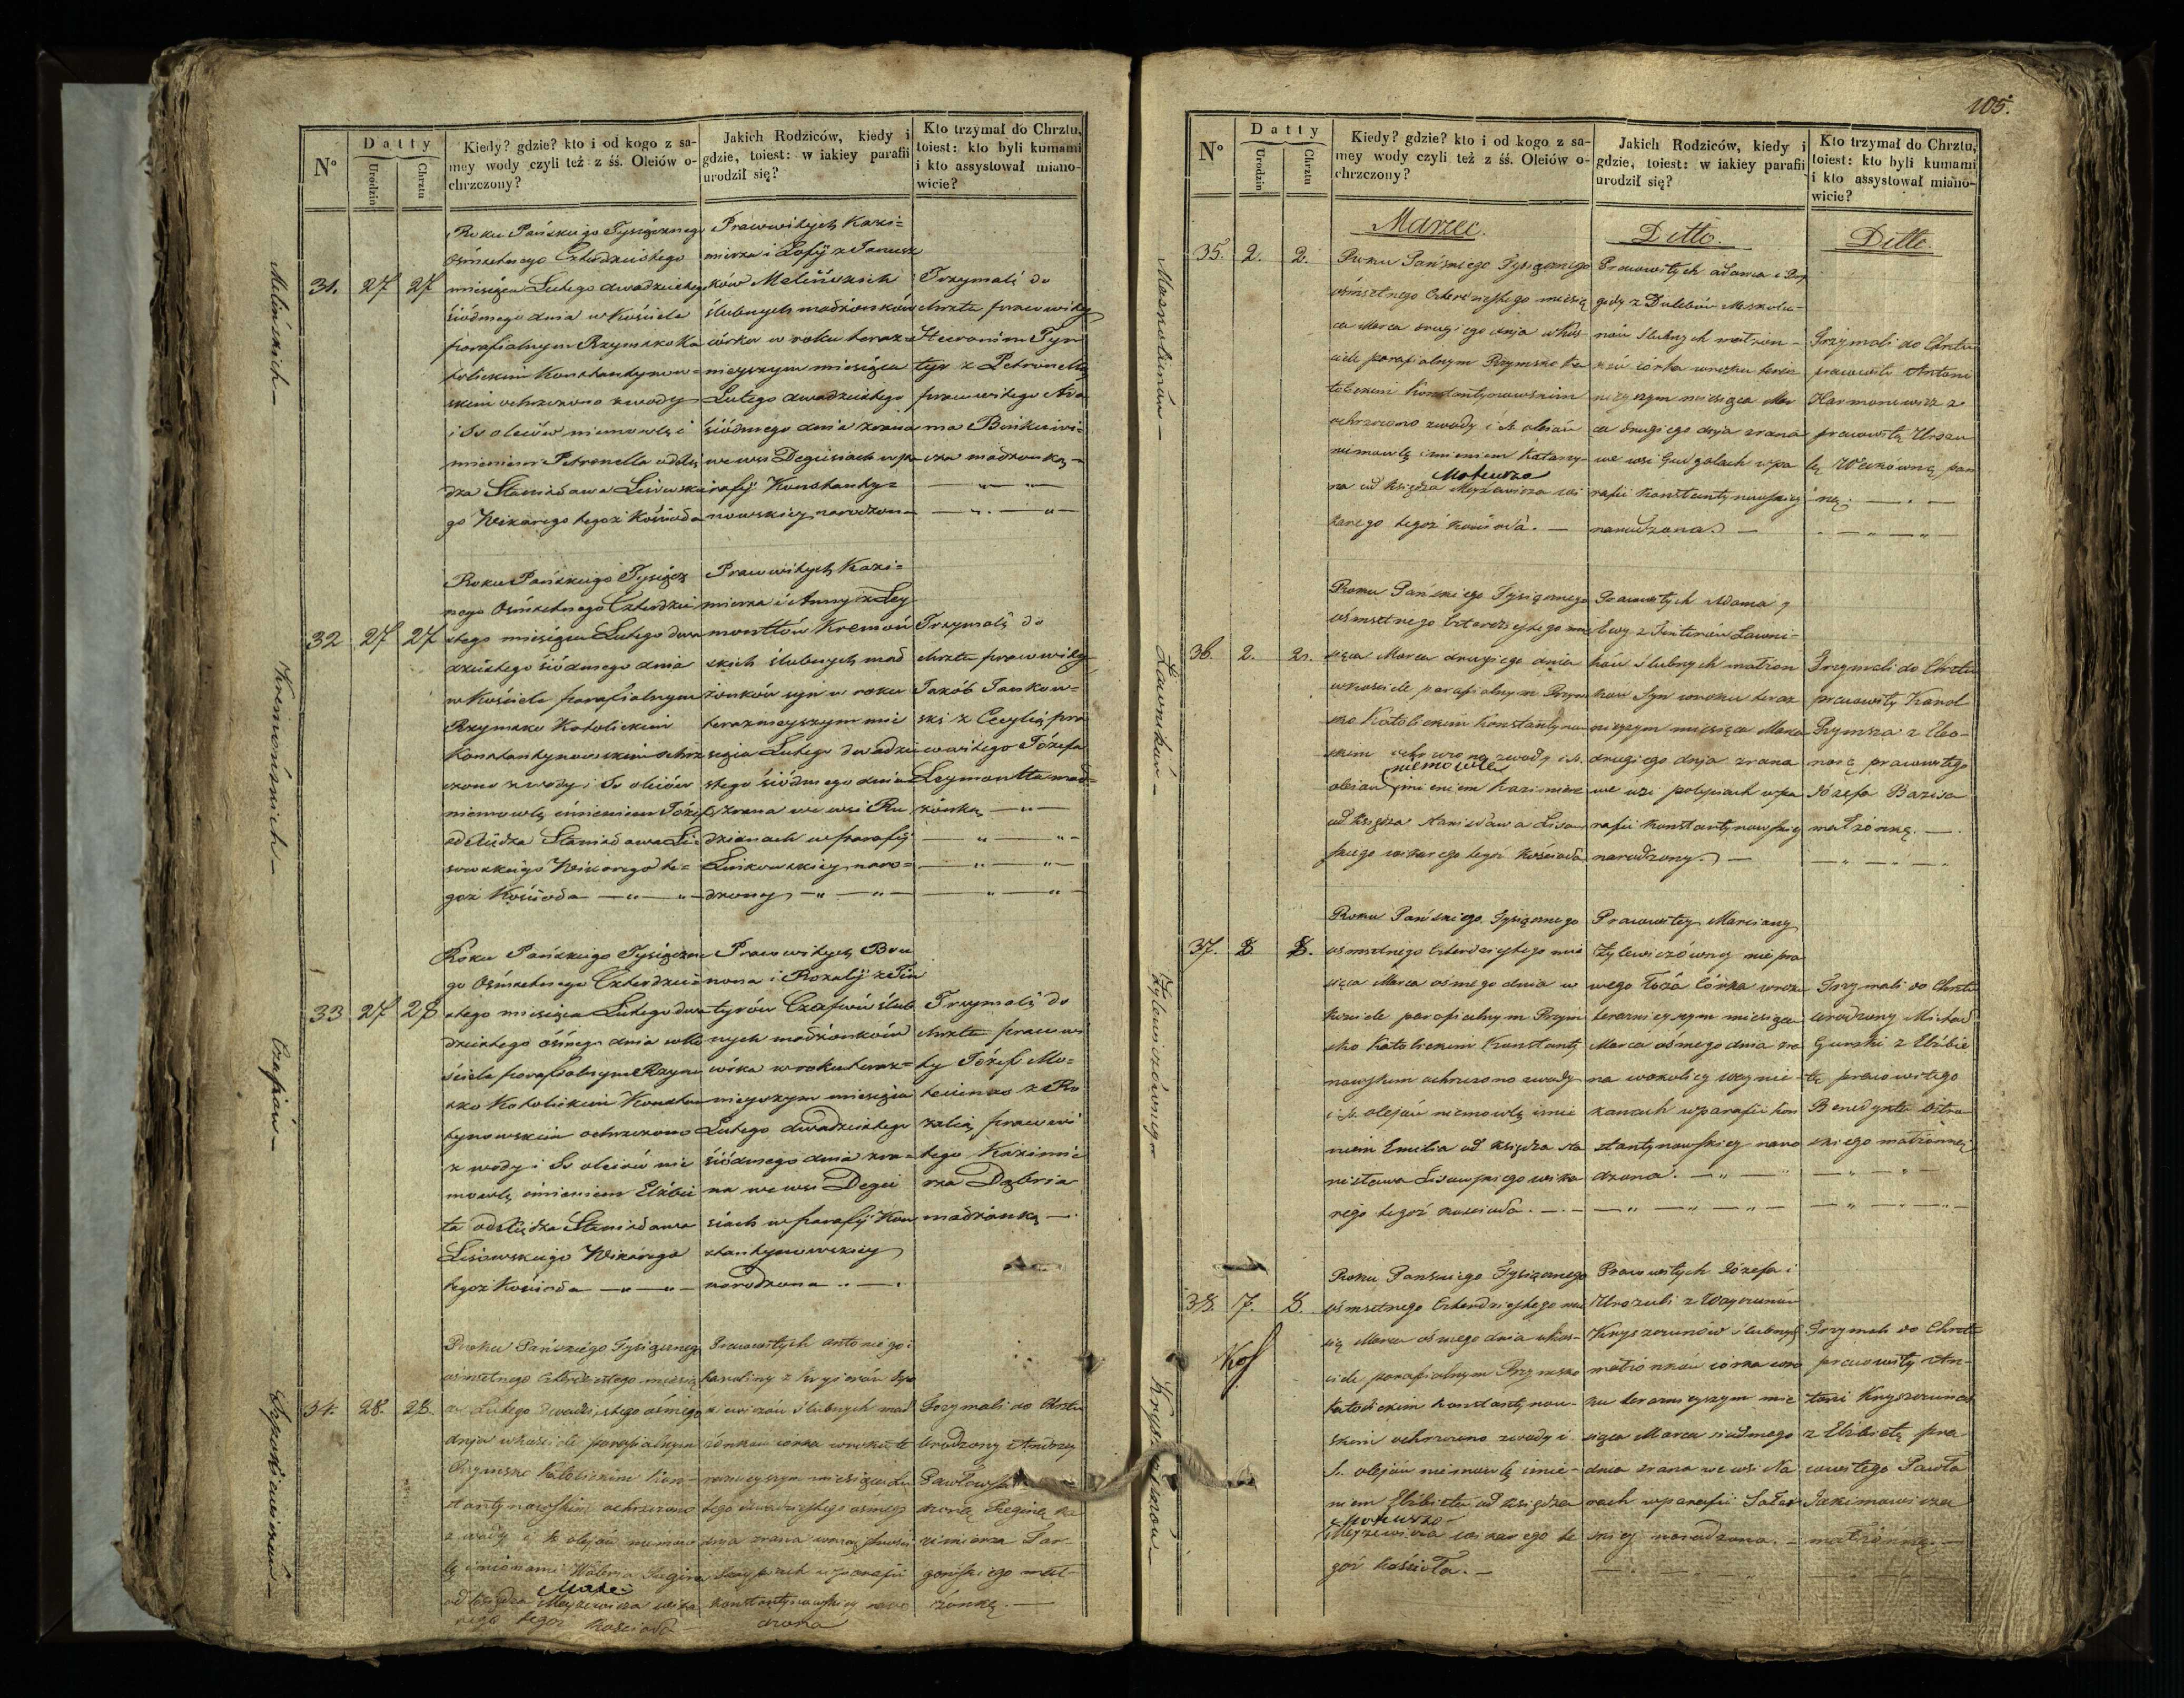 N°
Datty
Urodzin
Chrztu
Kiedy? gdzie? kto i od kogo z sa-
mey wody czyli też z śś. Oleiów o-
chrzczony?
Jakich Rodziców, kiedy i
gdzie, toiest: w iakiey parafii
urodził się?
Kto trzymał do Chrztu,
toiest: kto byli kumami
i kto assystował miano-
wicie?
Melińskich
31. 27 27
Roku Pańskiego Tysiącznego
Ośmsetnego Czterdziestego
miesiąca Lutego dwudziestego
siódmego dnia w Kościele
parafialnym Rzymsko Ka
tolickim Konstantynow=
skim ochrzczono z wody
i Ss oleiów niemowlę i
mieniem Petronella od Xię
dza Stanisława Lisowskie
go Wikarego tegoż Kościoła
Prawowitych Kazi=
mierza i Zofij z Janusz
ków Melińskich
ślubnych małżonków
córka w roku teraz=
nieyszym miesiąca
Lutego dwudziestego
siódmego dnia zrana
we wsi Degisiach w pa
rafij Konstanty=
nowskiey narodzona
Trzymali do
chrztu prawowity
Hieronim Tyn
tyr z Petronellą
prawowitego Ada
ma Binkiewi=
cza małżonką
Kremońskich
32 27 27
Roku Pańskiego Tysiącz
nego Ośmsetnego Czterdzie
stego miesiąca Lutego dwu
dziestego siódmego dnia
w Kościele parafialnym
Rzymsko Katolickim
Konstantynowskim ochrz
czono z wody i Ss oleiów
niemowlę imieniem Józef
od Xiędza Stanisława Li=
sowskiego Wikarego te=
goż Kościoła
Prawowitych Kazi=
mierza i Anny z Ley
monttów Kremoń
skich ślubnych mał
żonków syn w roku
teraznieyszym mie
siąca Lutego dwudzie
stego siódmego dnia
zrana we wsi Ru
dzianach w parafij
naro=
dzony
Trzymali do
chrztu prawowity
Jakób Jankow=
ski z Cecylią pra
wowitego Józefa
Leymontta mał=
żonką
Czafiów
33 27 28
Roku Pańskiego Tysiączne
go Ośmsetnego Czterdzie
stego miesiąca Lutego dwu
dziestego ósmego dnia w Ko
ściele parafialnym Rzym
sko Katolickim Konstan
tynowskim ochrzczono
z wody i Ss oleiów nie
mowlę imieniem Elżbie
ta od Xiędza Stanisława
Lisowskiego Wikarego
tegoż Kościoła
Prawowitych Bru
nona i Rozalij z Tin
tyrów Czafiów ślub
nych małżonków
córka w roku teraz=
nieyszym miesiąca
Lutego dwudziestego
siódmego dnia zra=
na we wsi Degie
siach w parafij Kon
stantynowskiey
narodzona
Trzymali do
chrztu prawowi
ty Józef Mo=
z Ro
zalią prawowi
tego Kazimie
rza
małżonką
34. 28. 28.
Roku Pańskiego Tysiącznego
ośmsetnego Czterdziestego miesią
ca Lutego dwudziestego ósmego
dnia w kościele parafialnym
Rzymsko Katolickim Kon-
stantynowskim ochrzczono
z wody i ss olejów niemow
lę imionami Waleria Regina
od księdza Mate- Meyzewicza wika
rego tegoż Kościoła
Prawowitych Antoniego i
Karoliny z
ślubnych mał
żonków córka w roku te
raznieyszym miesiąca Lu
tego dwudziestego ósmego
dnia zrana
w parafii
Konstantynowskiey naro
dzona
Trzymali do Chrztu
Urodzony Andrzey
Pawłowski
Reginą Ka
zimierza
mał-
żonką.
105.
N°
Datty
Urodzin
Chrztu
Kiedy? gdzie? kto i od kogo z sa-
mey wody czyli też z śś. Oleiów o-
chrzczony?
Jakich Rodziców, kiedy i
gdzie, toiest: w iakiey parafii
urodził się?
Kto trzymał do Chrztu,
toiest: kto byli kumami
i kto assystował miano-
wicie?
Marzec.
Ditto.
Ditto.
Moskolunów
35. 2. 2.
Roku Pańskiego Tysiącznego
ośmsetnego Czterdziestego miesią
ca Marca drugiego dnia w koś-
ciele parafialnym Rzymsko Ka
tolickim Konstantynowskim
ochrzczono z wody i ss. olejów
niemowlę imieniem Katarzy-
na od księdza Mateusza Meyzewicza wi
karego tegoż kościoła.
Prawowitych Adama i
z Dulebów Moskolu-
nów ślubnych małżon-
ków córka w roku teraz
nieyszym miesiąca Mar
ca drugiego dnia zrana
we wsi Gudgalach w pa
rafii Konstantynowskiey
narodzona.
Trzymali do Chrztu
prawowity Antoni
Harmonowicz z
prawowitą Urszu
lą pan
ną.
Ławników
36. 2. 2.
Roku Pańskiego Tysiącznego
ośmsetnego Czterdziestego mie
siąca Marca drugiego dnia
w kościele parafialnym Rzym
sko Katolickim Konstantynow
skim ochrzczono z wody i ss.
olejów niemowlę imieniem Kazimierz
od księdza Stanisława Lisow
skiego wikarego tegoż kościoła
Prawowitych Adama y
Ewy z Tinterów Ławni-
ków ślubnych małżon
ków syn w roku teraz
nieyszym miesiąca Marca
drugiego dnia zrana
we wsi w pa
rafii Konstantynowskiey
narodzony.
Trzymali do Chrztu
prawowity Karol
Rymsza z Eleo-
norą prawowitego
Józefa
małżonką.
Żylewiczówney
37. 8 8.
Roku Pańskiego Tysiącznego
ośmsetnego Czterdziestego mie
siąca Marca ósmego dnia w
kościele parafialnym Rzym
sko Katolickim Konstanty
nowskim ochrzczono z wody
i ss. olejów niemowlę imie
niem Emilia od księdza Sta
nisława Lisowskiego wika
rego tegoż kościoła.
Prawowitey Marciany
Żylewiczówney niepra
wego łoża córka w roku
teraznieyszym miesiąca
Marca ósmego dnia zra
na w okolicy
w parafii Kon
stantynowskiey naro
dzona.
Trzymali do Chrztu
urodzony Michał
Gurski z Elżbie
tą prawowitego
Benedykta Ostro
skiego małżonką
Knyszewiczów
38. 7. 8.
Roku Pańskiego Tysiącznego
ośmsetnego Czterdziestego mie
sią Marca ósmego dnia w koś-
ciele parafialnym Rzymsko
Katolickim Konstantynow-
skim ochrzczono z wody i
s. olejów niemowlę imie-
niem Elżbieta od księdza
Mateusza Meyzewicza wikarego te
goż kościoła.
Prawowitych Józefa i
Urszuli z
ślubnych
małżonków córka w ro
ku teraznieyszym mie
siąca Marca siódmego
dnia zrana we wsi
w parafii
narodzona.
Trzymali do Chrztu
prawowity An-
toni
z Elżbietą pra
wowitego Pawła
Jakimowicza
małżonką.